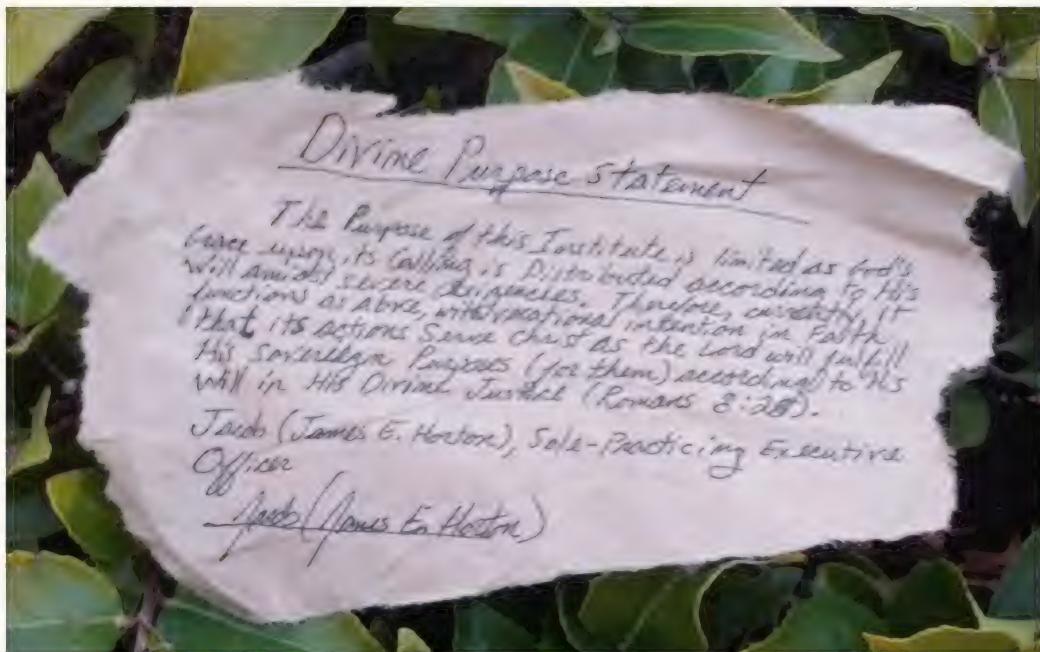 Divine Purpose Statement
The Purpose of this Institute is limited as God's
Grace upon its Calling is Distributed according to His
Will amidst severe exigencies. Therefore, currently, it
functions as Above, with vocational intention in Faith
that its actions Serve Christ as the Lord will fulfill
His Sovereign Purposes (for them) according to His
Will in His Divine Justice (Romans 8:28).
Jacob (James E. Horton), Sole-Practicing Executive
Officer
Jacob (James E. Horton)